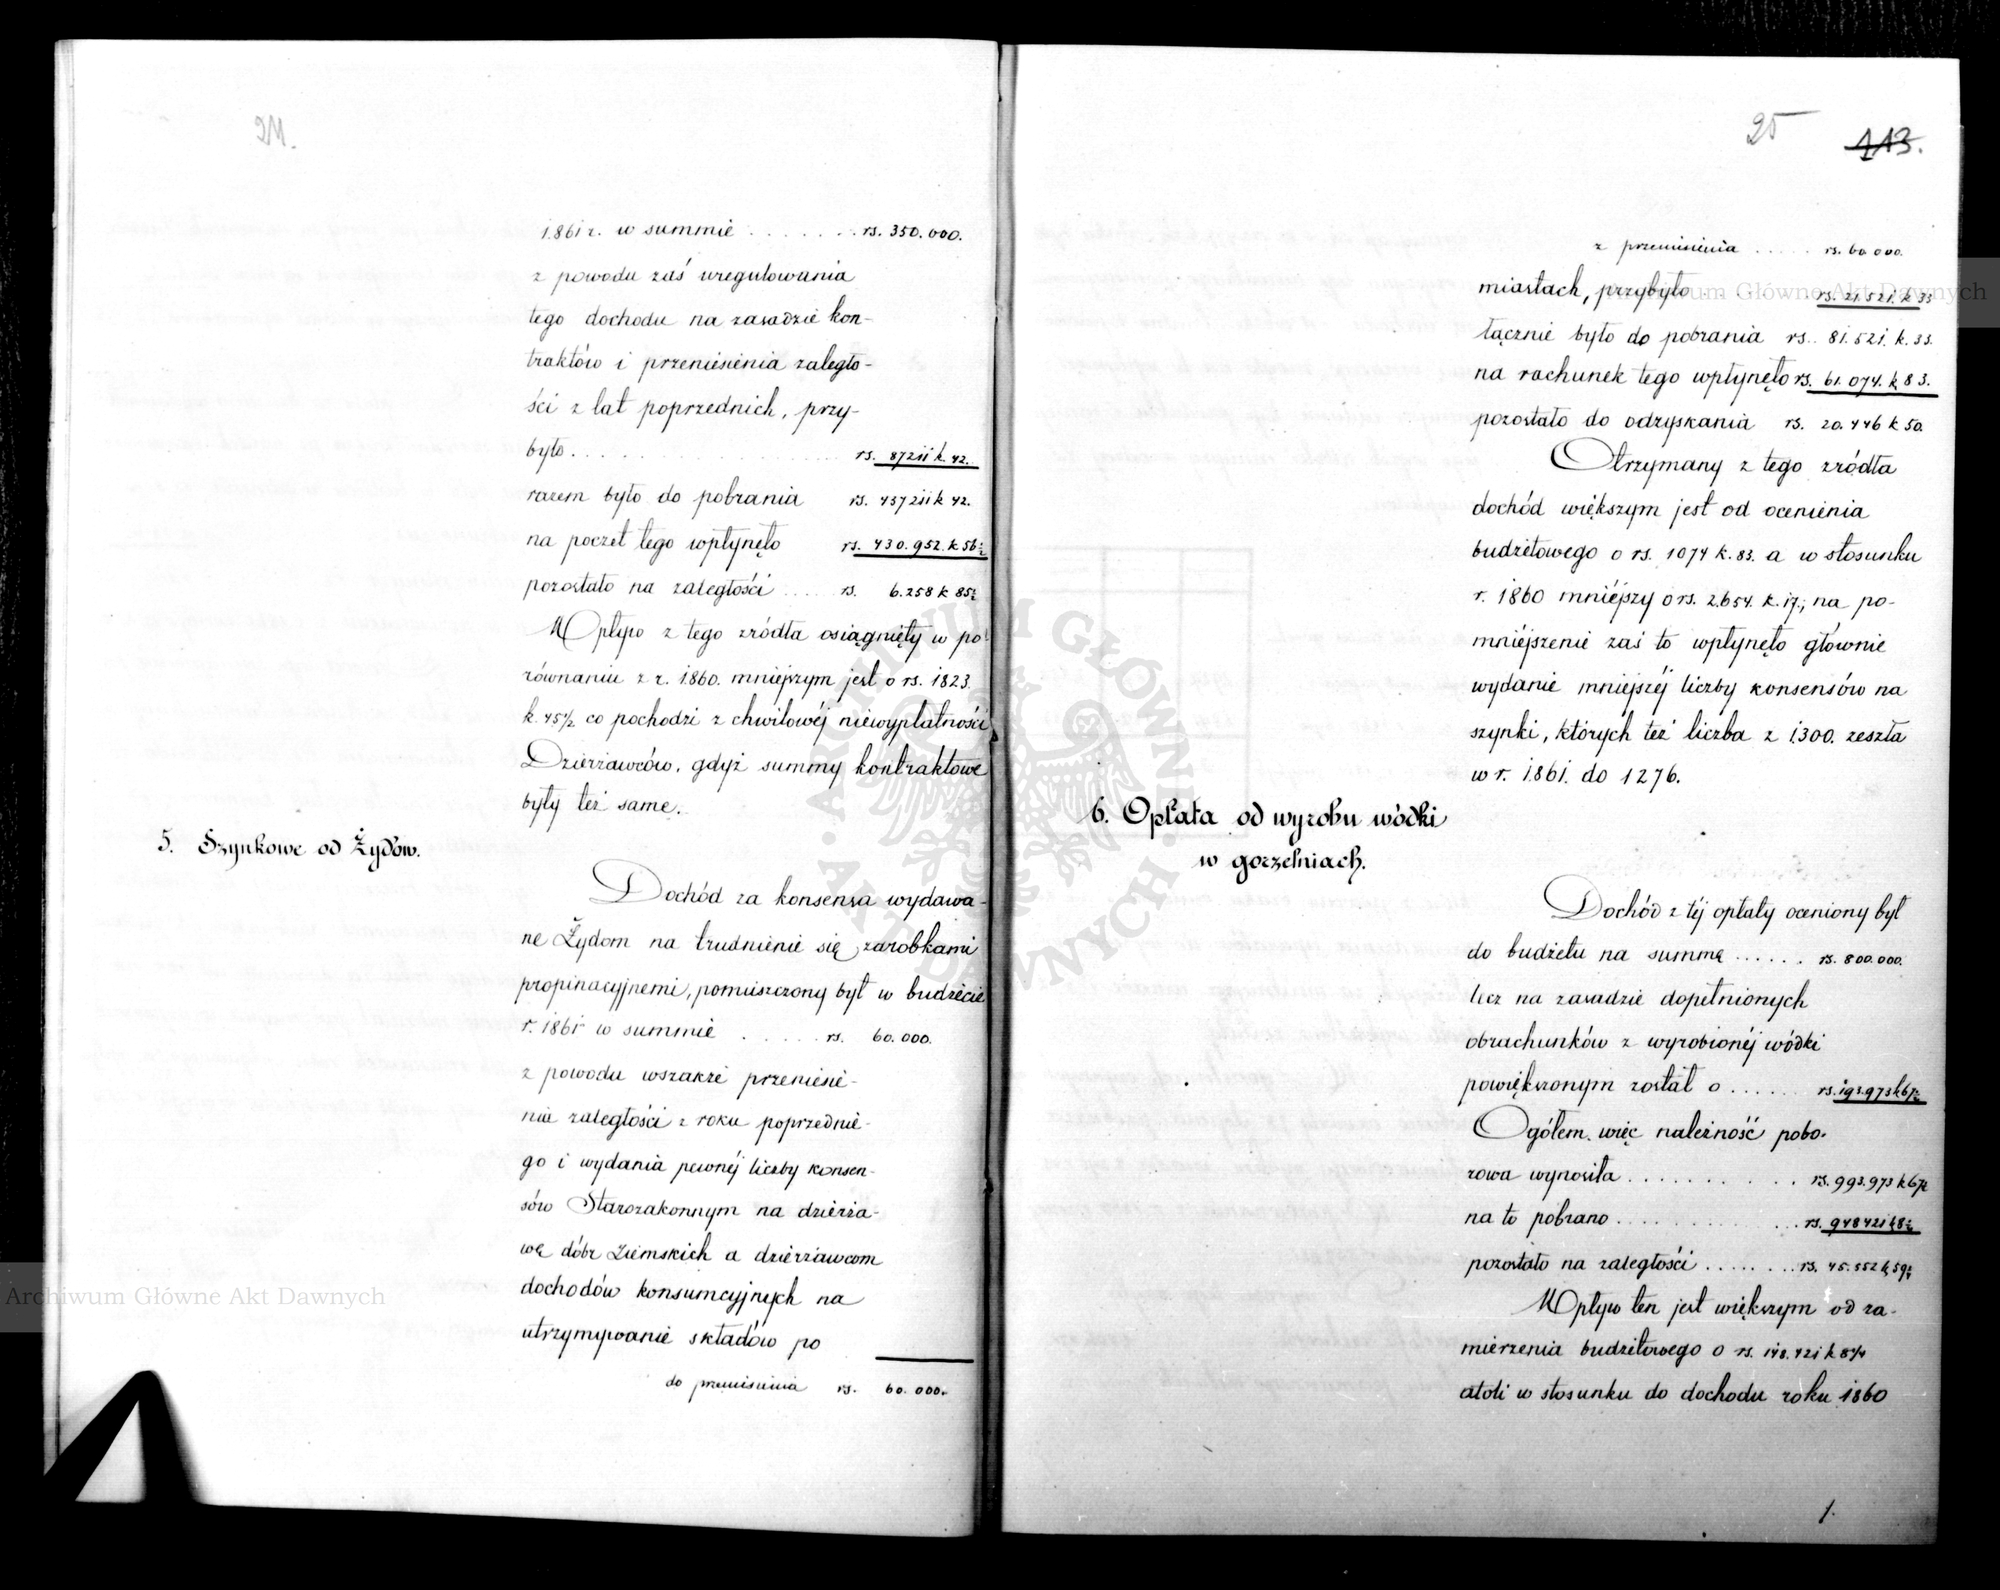 24.
1861 r. w summie . . . . . . . rs. 350.000.
z powodu zaś uregulowania
tego dochodu na zasadzie kon-
traktów i przeniesienia zaległo-
ści z lat poprzednich, przy-
było . . . . . . . . . . . . rs. 87211 k. 42.
razem było do pobrania rs. 437211 k 42.
na poczet tego wpłynęło rs. 430.952. k 56½
pozostało na zaległości . . . . rs. 6.258 k 85½
Wpływ z tego źródła osiągnięty w po-
równaniu z r. 1860. mniejszym jest o rs. 1823.
k. 45½ co pochodzi z chwilowéj niewypłatności
Dzierżawców, gdyż summy kontraktowe
były też same.
5. Szynkowe od Żydów.
Dochód za konsensa wydawa-
ne Żydom na trudnienie się zarobkami
propinacyjnemi, pomieszczony był w budżecie
r. 1861 w summie . . . . . rs. 60.000.
z powodu wszakże przeniesie-
nia zaległości z roku poprzednie-
go i wydania pewnéj liczby konsen-
sów Starozakonnym na dzierża-
wę dóbr Ziemskich a dzierżawcom
dochodów konsumcyjnych na
utrzymywanie składów po
do przeniesienia rs. 60.000.
25 113.
z przeniesienia . . . . . rs. 60.000.
miastach, przybyło . . . rs. 21.521. k 33
łącznie było do pobrania rs. 81.521. k. 33.
na rachunek tego wpłynęło rs. 61.074. k 83.
pozostało do odzyskania rs. 20.446 k 50.
Otrzymany z tego źródła
dochód większym jest od ocenienia
budżetowego o rs. 1074 k. 83. a w stosunku
r. 1860 mniéjszy o rs. 2.654. k. 17; na po-
mniéjszenie zaś to wpłynęło głównie
wydanie mniejszéj liczby konsensów na
szynki, których też liczba z 1300. zeszła
w r. 1861. do 1276.
6. Opłata od wyrobu wódki
w gorzelniach.
Dochód z téj opłaty oceniony był
do budżetu na summę . . . . . . rs. 800.000.
lecz na zasadzie dopełnionych
obrachunków z wyrobionéj wódki
powiększonym został o . . . . . . rs. 193.973 k 67½
Ogółem więc należność pobo-
rowa wynosiła . . . . . . . . . . rs. 993.973 k 67½
na to pobrano . . . . . . . . . . rs. 948421 k 8¼
pozostało na zaległości . . . . . . . rs. 45.552 k 59¼
Wpływ ten jest większym od za-
mierzenia budżetowego o rs. 148.421 k 8¼
atoli w stosunku do dochodu roku 1860
1.
ARCHIWUM GŁÓWNE AKT DAWNYCH
Archiwum Główne Akt Dawnych
Archiwum Główne Akt Dawnych